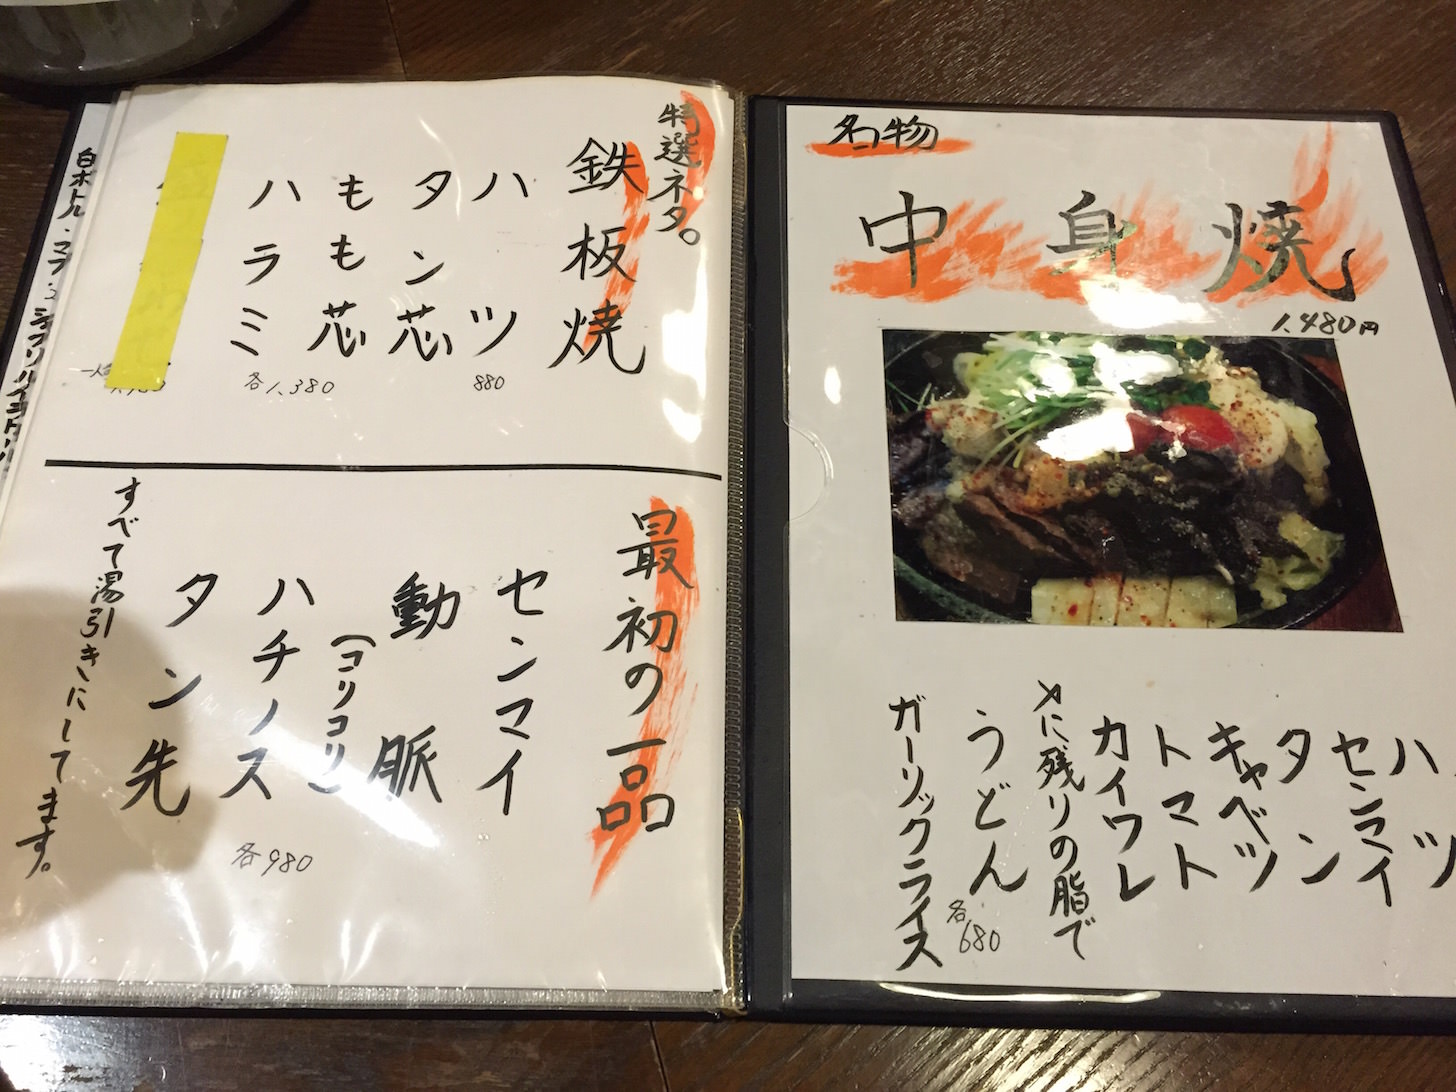 名物
中身焼
1,480円
ハツ
センマイ
タン
キャベツ
トマト
カイワレ
〆に残りの脂で
うどん
ガーリックライス
各680
特選ネタ。
鉄板焼
ハツ
880
タン芯
もも芯
ハラミ
各1,380
最初の一品
センマイ
動脈
(コリコリ)
ハチノス
タン先
各980
すべて湯引きにしてます。